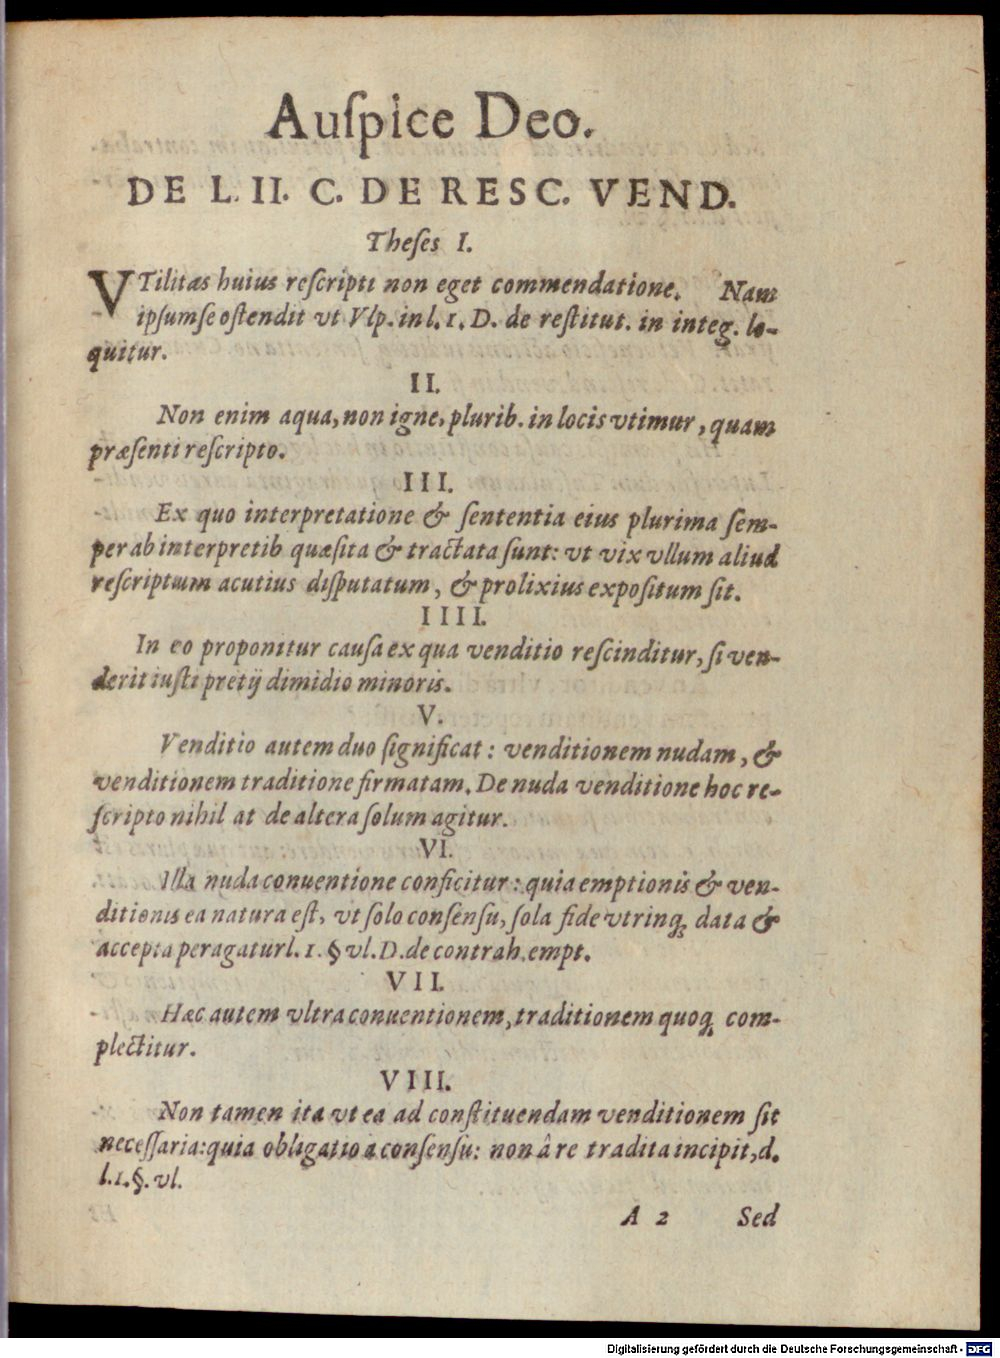 Auſpice Deo.
DE L. II. C. DE RESC. VEND.
Theſes I.
VTilitas huius reſcripti non eget commendatione. Nam
ipſumſe oſtendit vt Vlp. in l. 1. D. de reſtitut. in integ. lo-
quitur.
II.
Non enim aqua, non igne, plurib. in locis vtimur, quam
præſenti reſcripto.
III.
Ex quo interpretatione & ſententia eius plurima ſem-
per ab interpretib quæſita & tractata ſunt: vt vix vllum aliud
reſcriptum acutius diſputatum, & prolixius expoſitum ſit.
IIII.
In eo proponitur cauſa ex qua venditio reſcinditur, ſi ven-
derit iuſti pretij dimidio minoris.
V.
Venditio autem duo ſignificat: venditionem nudam, &
venditionem traditione firmatam. De nuda venditione hoc re-
ſcripto nihil at de altera ſolum agitur.
VI.
Illa nuda conuentione conficitur: quia emptionis & ven-
ditionis ea natura eſt, vt ſolo conſenſu, ſola fide vtrinq; data &
accepta peragatur l. 1. § vl. D. de contrah. empt.
VII.
Hæc autem vltra conuentionem, traditionem quoq; com-
plectitur.
VIII.
Non tamen ita vt ea ad conſtituendam venditionem ſit
neceſſaria: quia obligatio a conſenſu: non â re tradita incipit, d.
l. 1. §. vl.
A 2 Sed
Digitalisierung gefördert durch die Deutsche Forschungsgemeinschaft - DFG